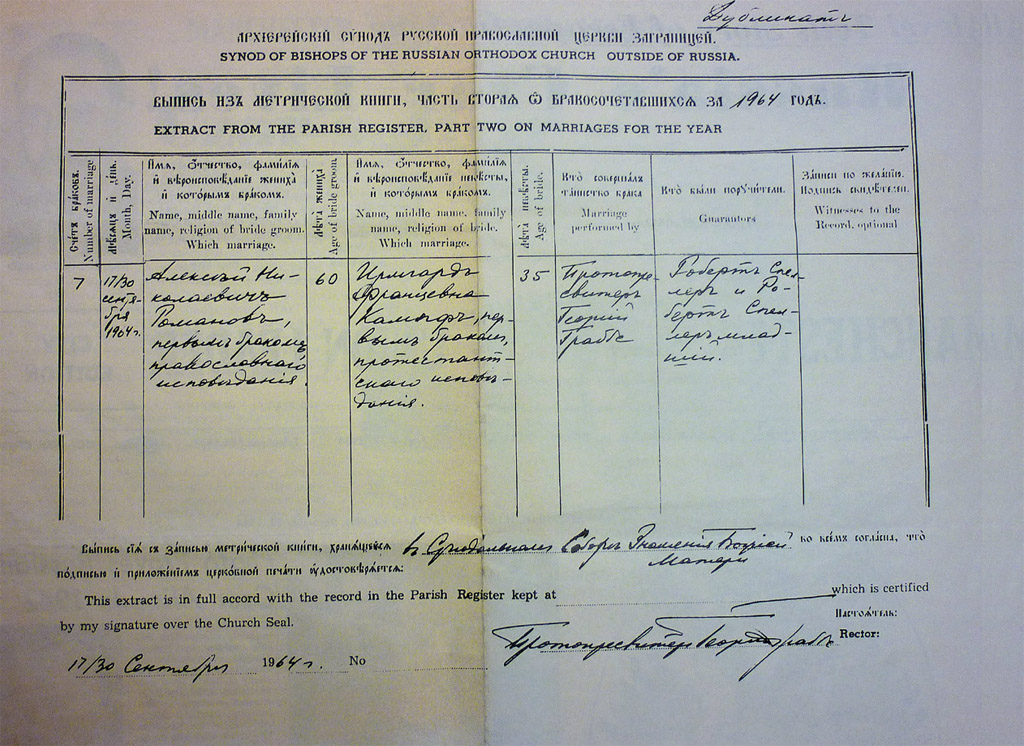 Дубликатъ
АРХІЕРЕЙСКІЙ СѴНОДЪ РУССКОЙ ПРАВОСЛАВНОЙ ЦЕРКВИ ЗАГРАНИЦЕЙ.
SYNOD OF BISHOPS OF THE RUSSIAN ORTHODOX CHURCH OUTSIDE OF RUSSIA.
ВЫПИСЬ ИЗЪ МЕТРИЧЕСКОЙ КНИГИ, ЧАСТЬ ВТОРАЯ Ѿ БРАКОСОЧЕТАВШИХСЯ ЗА 1964 ГОДЪ.
EXTRACT FROM THE PARISH REGISTER, PART TWO ON MARRIAGES FOR THE YEAR
Счетъ браковъ.
Number of marriage
Мѣсяцъ и день.
Month, Day.
Имя, Отчество, фамилія
и вѣроисповѣданіе жениха
и которымъ бракомъ.
Name, middle name, family
name, religion of bride groom.
Which marriage.
Лѣта жениха
Age of bride groom
Имя, Отчество, фамилія
и вѣроисповѣданіе невѣсты,
и которымъ бракомъ.
Name, middle name, family
name, religion of bride.
Which marriage.
Лѣта невѣсты.
Age of bride.
Кто совершалъ
таинство брака
Marriage
performed by
Кто были поручители.
Guarantors
Записи по желанію.
Подпись свидѣтелей.
Witnesses to the
Record, optional
7
17/30
сентя-
бря
1964 г.
Алексѣй Ни-
колаевичъ
Романовъ,
первымъ бракомъ,
православнаго
исповѣданія.
60
Ирмгардъ
Францевна
Кампфъ, пер-
вымъ бракомъ,
протестант-
скаго исповѣ-
данія.
35
Протопре-
свитеръ
Георгій
Граббе
Робертъ Спел-
леръ и Ро-
бертъ Спел-
леръ млад-
шій.
Выпись сія съ записью метрической книги, хранящейся въ Сѵнодальномъ Соборѣ Знаменія Божіей Матери во всемъ согласна, что
подписью и приложеніемъ церковной печати удостовѣряется:
This extract is in full accord with the record in the Parish Register kept at which is certified
by my signature over the Church Seal.
Настоятель:
Rector:
Протопресвитеръ Георгій Граббе
17/30 Сентября 1964 г. No